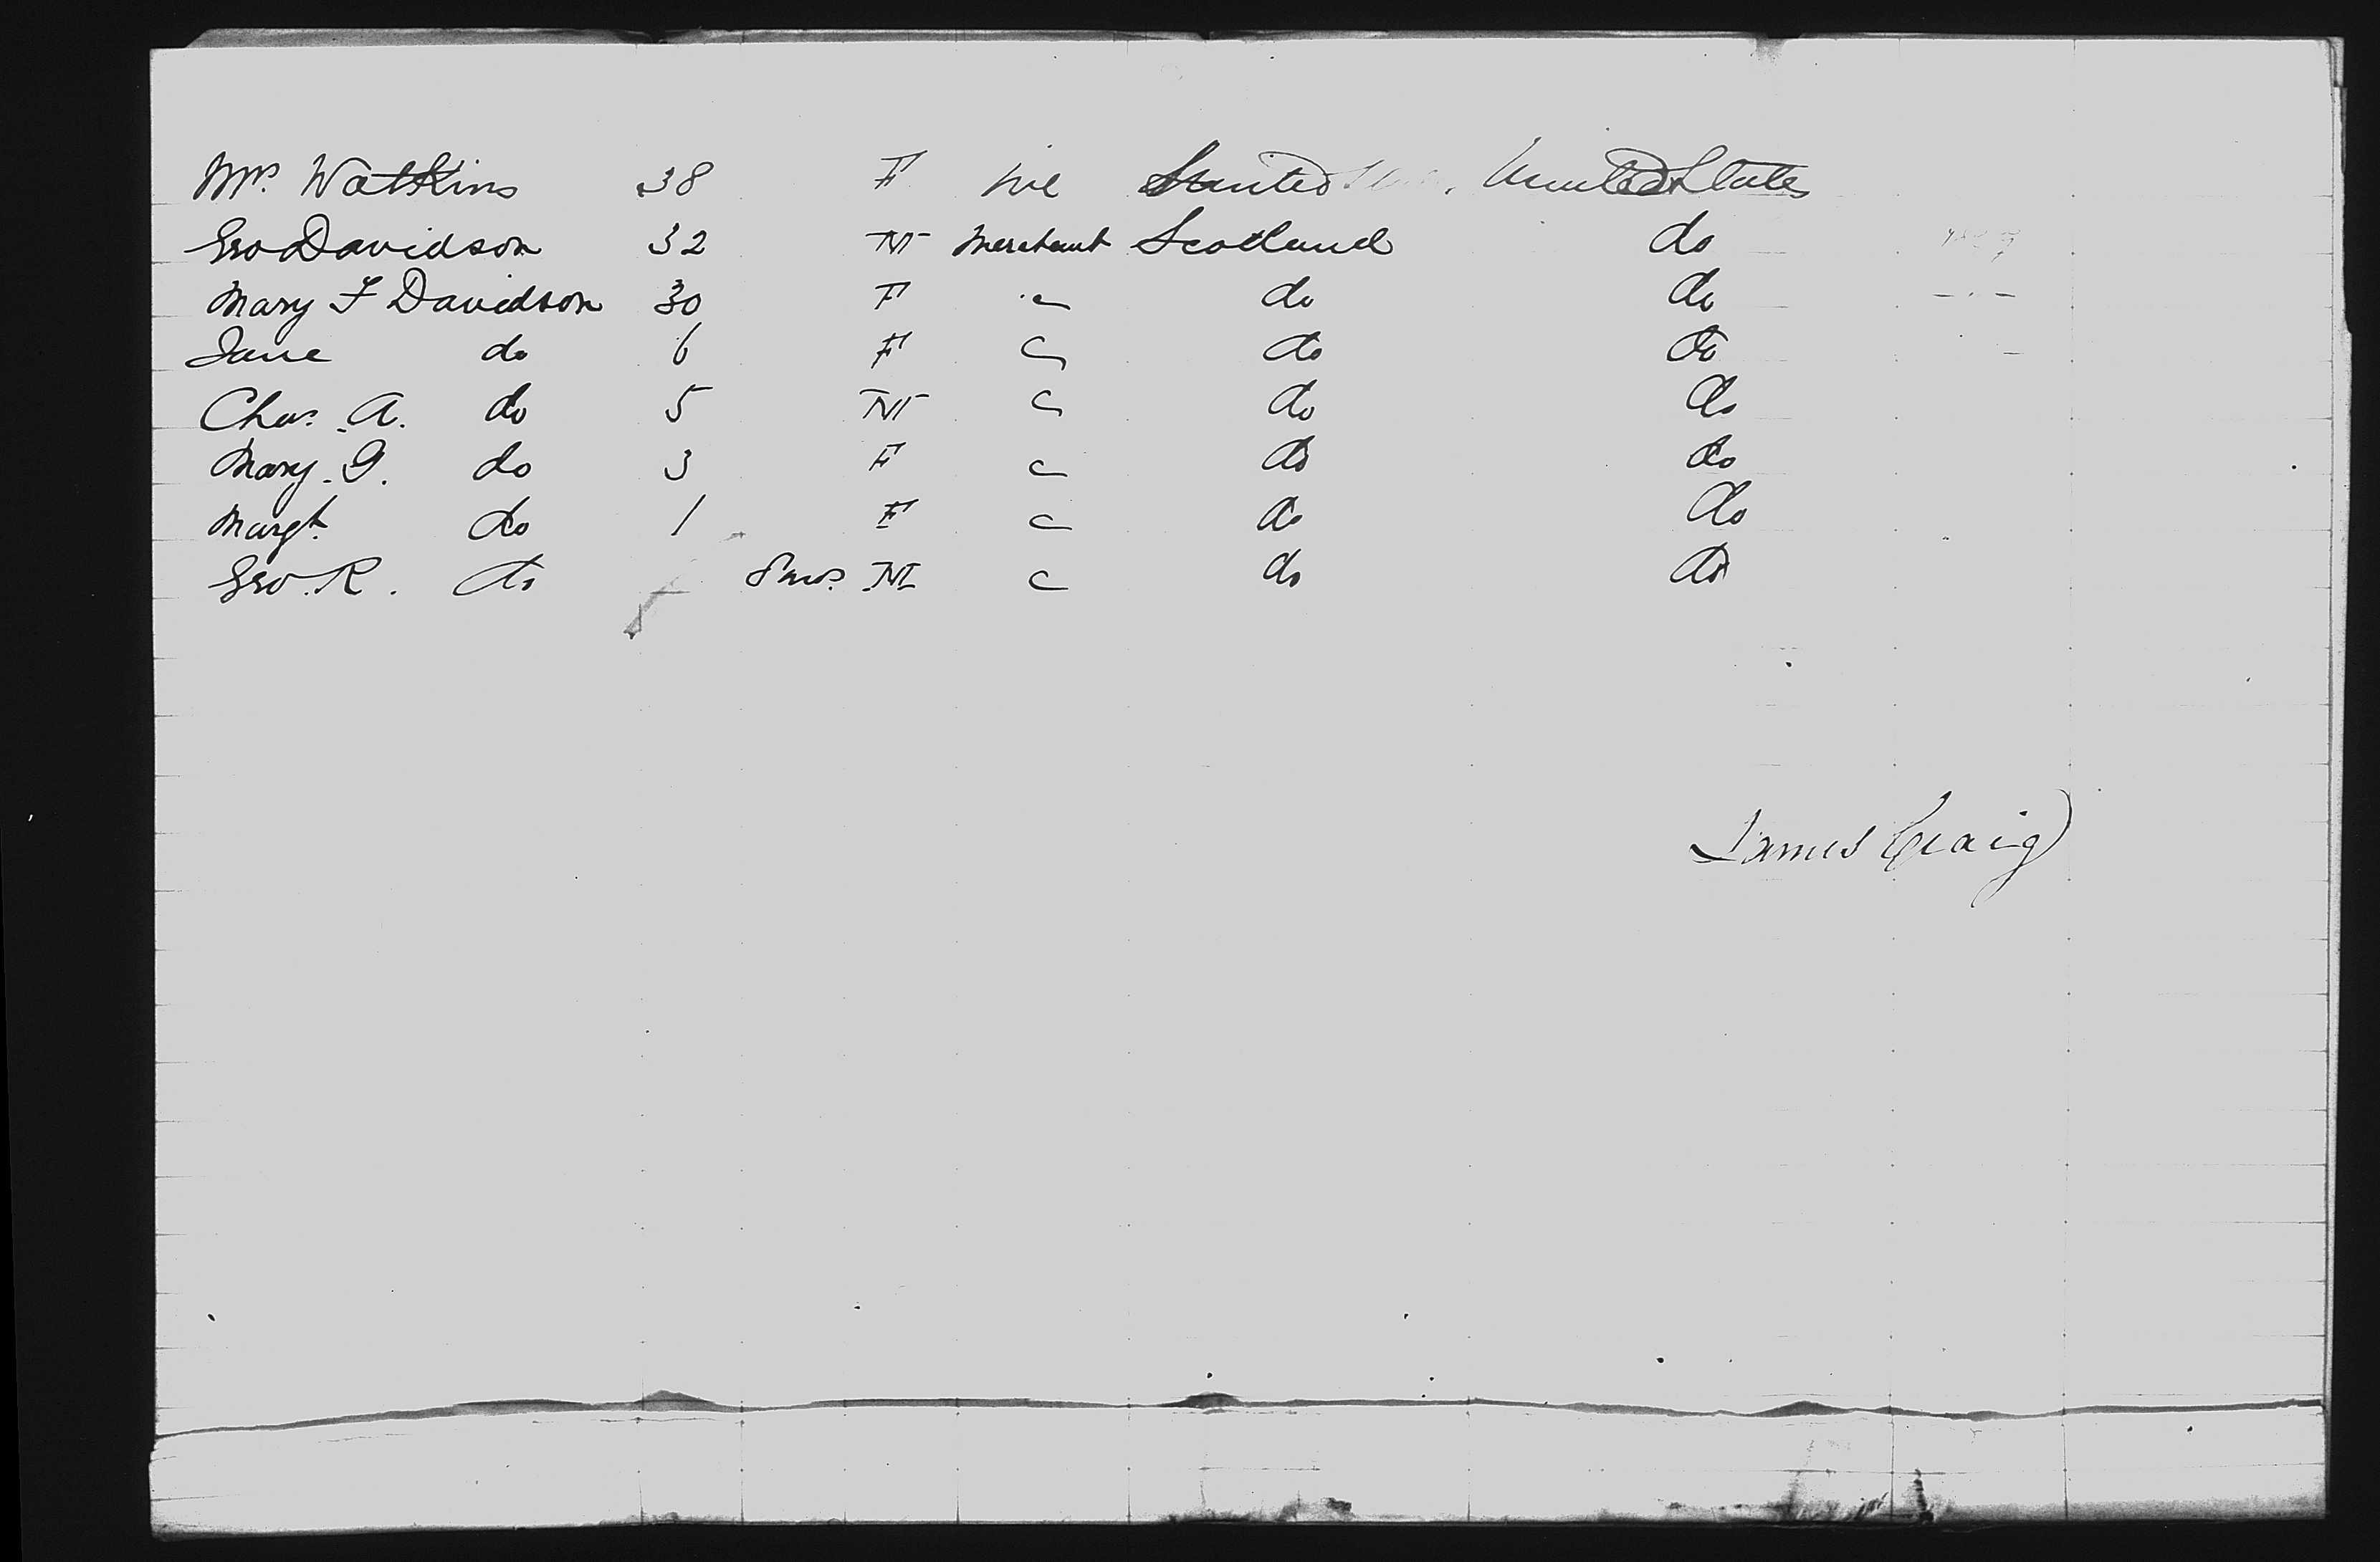 Mrs Watkins 38 F nil United United States
Geo Davidson 32 M Merchant Scotland do
Mary F Davidson 30 F do do
Jane do 6 F do do
Chas. A. do 5 M do do
Mary. G. do 3 F do do
Margt. do 1 F do do
Geo. R. do mos M do do
James Craig